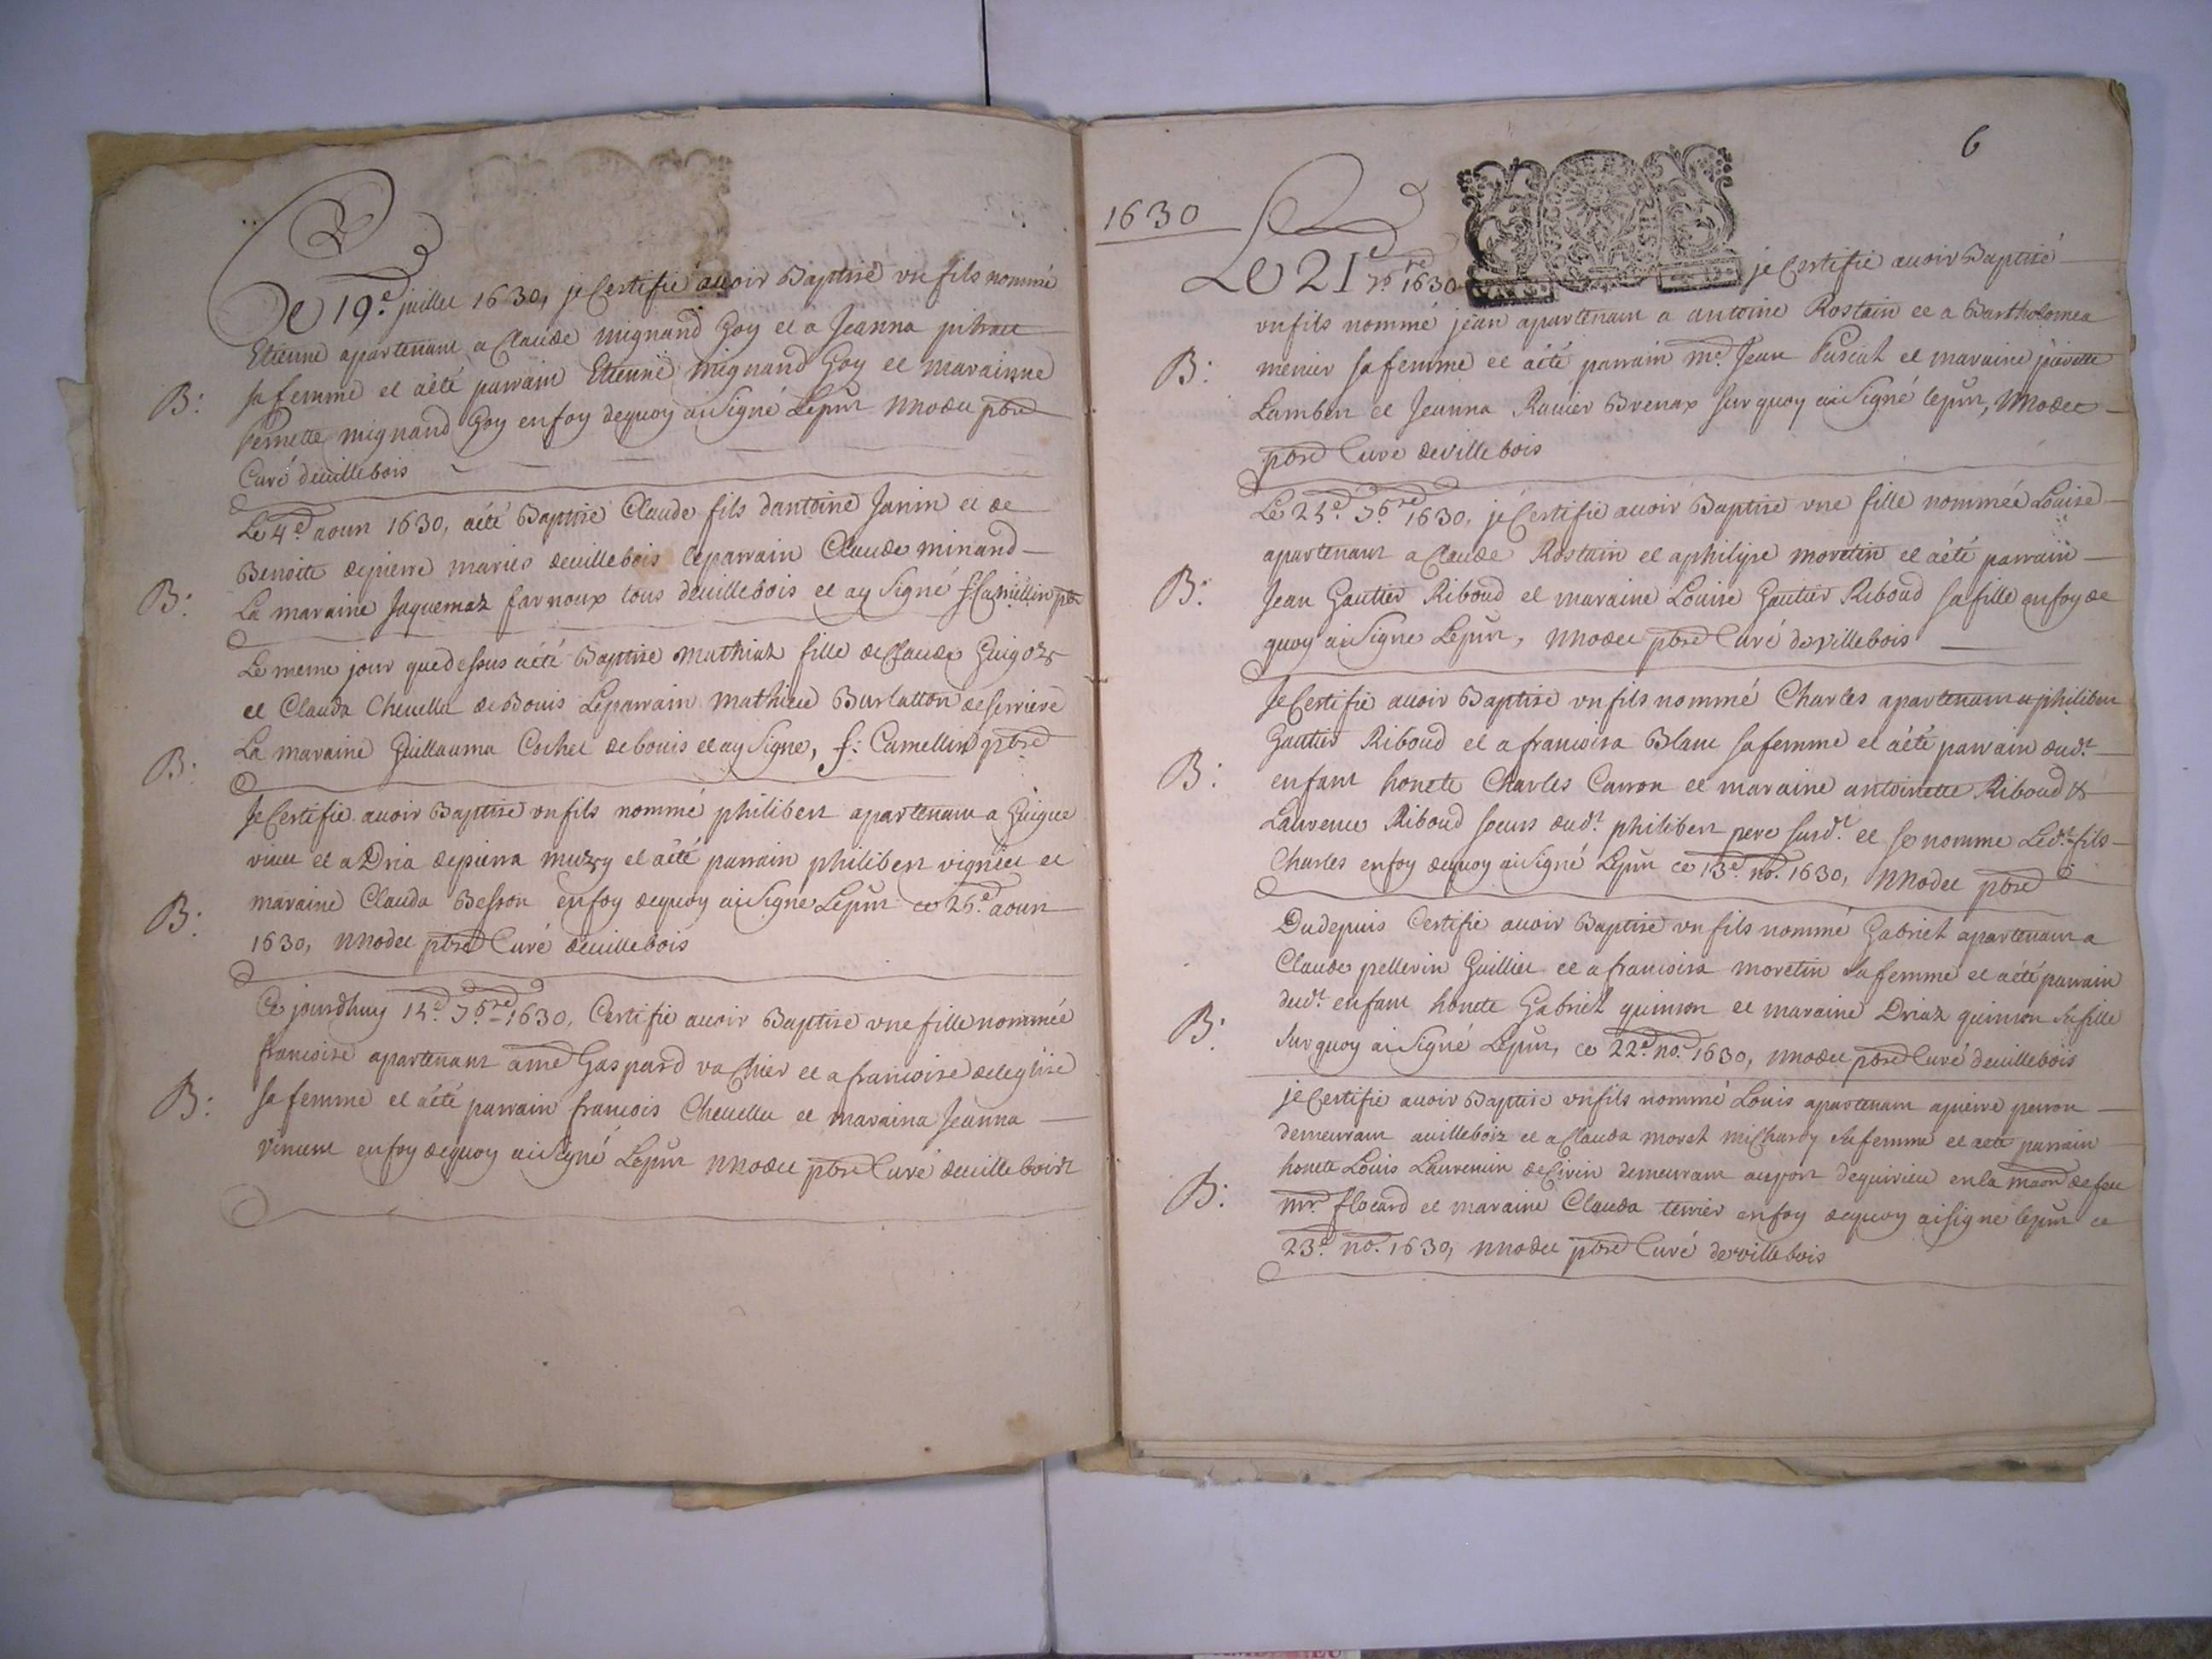 Le 19e juillet 1630, je Certifie auoir Baptisé vn fils nommé
Etienne apartenant a Claude mignand Goy et a Jeanna
B: sa femme et aété parrain Etienne mignand Goy et marainne
Pernette mignand Goy enfoy dequoy ai Signé Lepnt Modet pbre
Curé deuillebois
Le 4e aoust 1630, aété Baptisé Claude fils dantoine Janin et de
Benoite depierre mariés deuillebois leparrain Claude minand
B: La maraine Jaquemaz farnoux tous deuillebois et ay Signé f: Camellin pbre
Le meme jour quedessus aété Baptisé Mathiaz fille de Claude Guigoz
et Clauda Cheuellu de Bouis Leparrain Mathieu Burlatton deserriere
B: La maraine Guillauma Cochet de bouis et ay Signe, f: Camellin pbre
Je Certifie auoir Baptisé vn fils nommé philibert apartenant a Guigue
et a Dria depierra et aété parrain philibert vignieu et
B: maraine Clauda Besson enfoy dequoy ai Signé Lepnt ce 26e aoust
1630, Modet pbre Curé deuillebois
Ce jourdhuy 14e 7bre 1630, Certifie auoir Baptisé vne fille nommée
francoise apartenant a me Gaspard vachier et a francoise deleglise
B: sa femme et aété parrain francois Cheuellu et maraina Jeanna
vincent enfoy dequoy ai Signé Lepnt Modet pbre Curé deuillebois
6
1630
Le 21e 7bre 1630 je Certifie auoir Baptisé
vn fils nommé jean apartenant a antoine Rostain et a Bartholomea
B: menier sa femme et aété parrain me Jean et maraine pierette
Lambert et Jeanna Rauier Brenax Sur quoy ai Signé lepnt, Modet
pbre Curé deVillebois
Le 25e 7bre 1630, je Certifie auoir Baptisé vne fille nommée Louise
apartenant a Claude Rostain et aphilipe moretin et aété parrain
B: Jean Gautier Riboud et maraine Louise Gautier Riboud sa fille enfoy de
quoy ai Signe Lepnt, Modet pbre Curé devillebois
Je Certifie auoir Baptisé vn fils nommé Charles apartenant a philibert
Gautier Riboud et a francoisa Blanc sa femme et aété parrain dudt
B: enfant honete Charles Carron et maraine antoinette Riboud &
Laurence Riboud soeurs dudt philibert pere susdt et se nomme Ledt fils
Charles enfoy dequoy ai Signé Lepnt ce 13e no. 1630, Modet pbre
Dudepuis Certifie auoir Baptisé vn fils nommé Gabriel apartenant a
Claude pellerin Guillier et a francoisa moretin Sa femme et aété parrain
B: dudt enfant honete Gabriel quinson et maraine Driaz quinson Sa fille
Sur quoy ai Signé Lepnt, ce 22e no. 1630, Modet pbre Curé deuillebois
je Certifie auoir Baptisé vn fils nommé Louis apartenant apierre perron
demeurant auillebois et a Clauda moret michardy Sa femme et aété parrain
B: honete Louis Laurencin de Cirin demeurant auport dequirieu enla maon de feu
mr. flocard et maraine Clauda terrier enfoy dequoy ai signe lepnt ce
23e no. 1630, Modet pbre Curé devillebois